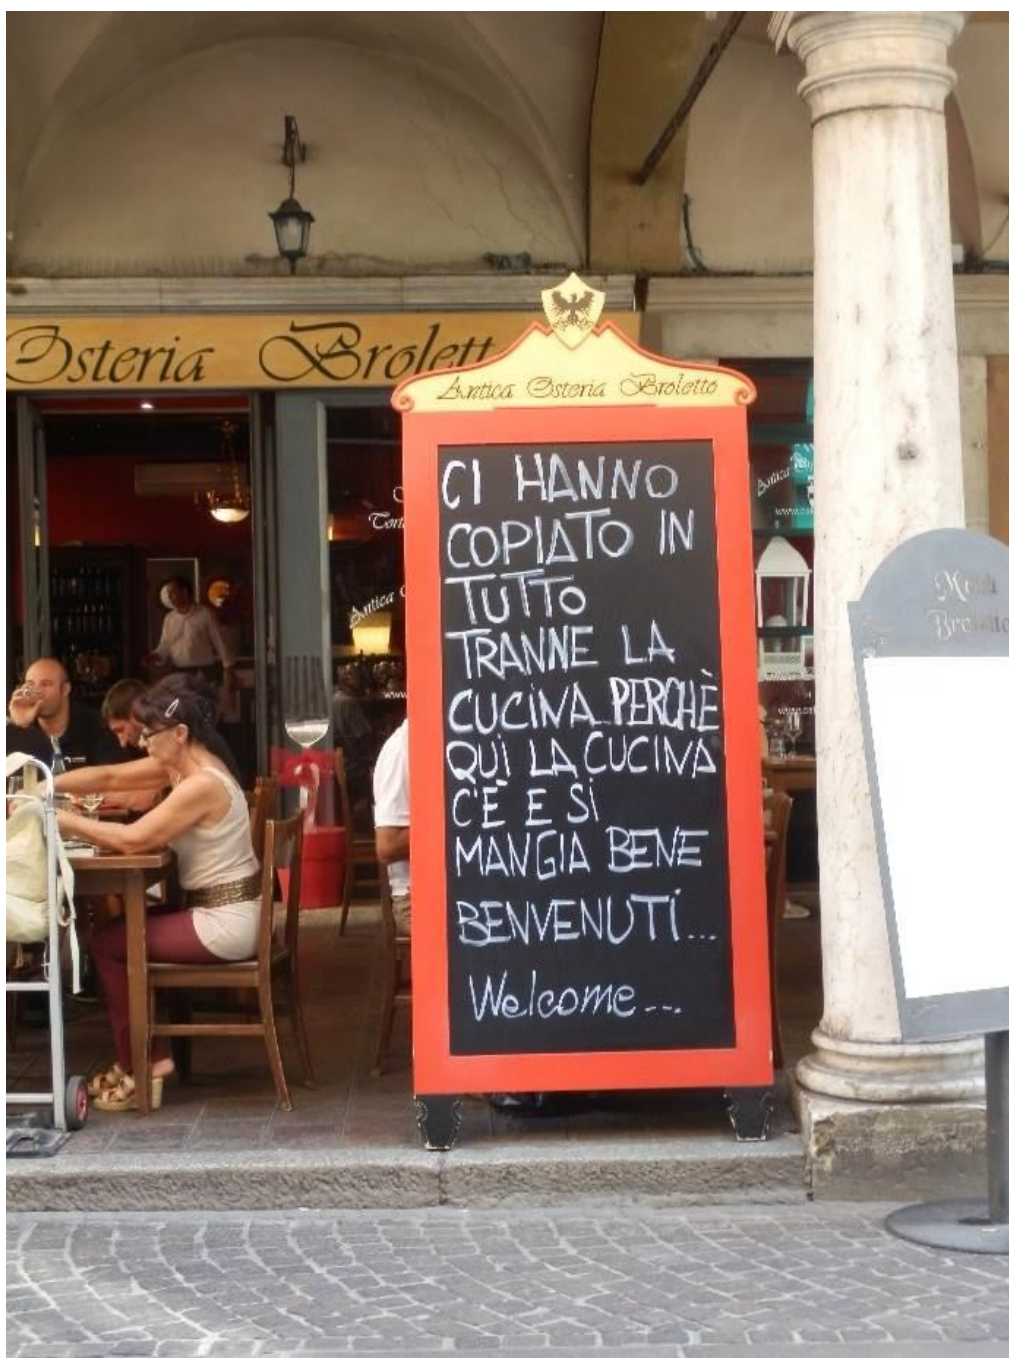 Osteria Brolett
Antica Osteria Broletto
CI HANNO
COPIATO IN
TUTTO
TRANNE LA
CUCINA PERCHÈ
QUI LA CUCINA
C'È E SI
MANGIA BENE
BENVENUTI...
Welcome...
Antica
Antica
Menù
Broletto